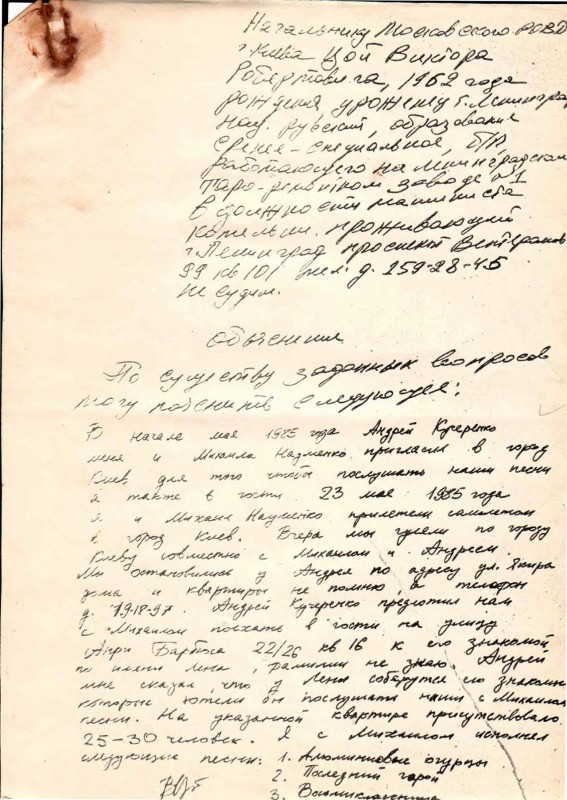 Начальнику Московского РОВД
г. Киева Цой Виктора
Робертовича, 1962 года
рождения урожениу г. Ленинград
Нац. русский, образование
средне-специальное, б/п,
работающего на Ленинградском
заводе №1
в должности машиниста
котельни. проживающий
г. Ленинград проспект Ветеранов
99 кв 101 тел. д. 259-28-45
не судим.
Объяснения
По существу заданных вопросов
могу пояснить следующее:
В начале мая 1985 года Андрей Кучеренко
меня и Михаила Науменко пригласил в город
Киев для того чтобы послушать наши песни
а также в гости. 23 мая 1985 года
я и Михаил Науменко прилетели самолетом
в город Киев. Вчера мы гуляли по городу
Киеву совместно с Михаилом и Андреем.
Мы остановились у Андрея по адресу ул. Якира
дома и квартиры не помню, а телефон
д. 79-18-97. Андрей Кучеренко предложил нам
с Михаилом поехать в гости на улицу
Анри Барбюса 22/26 кв 16 к его знакомой
по имени Лена, фамилии не знаю. Андрей
мне сказал, что у Лены соберутся его знакомые
которые хотели бы послушать наши с Михаилом
песни. На указанной квартире присутствовало
25-30 человек. Я с Михаилом исполнял
следующие песни: 1. Алюминиевые огурцы
2. Последний герой
3. Восьмиклассница